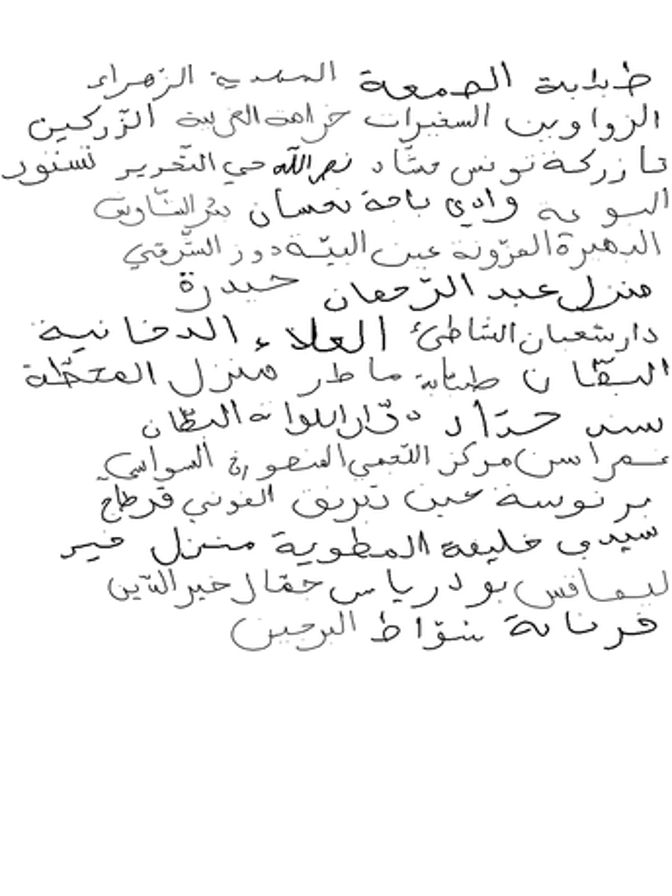 طبابة الصمعة المهدية الزهراء
الزواوين السغيرات حزامة الغربية الزركين
تازركة تونس مشاد نصرالله حي التحرير تستور
وادي باجة نحسان بئر الشاوش
الدهيرة العزونة عين البيّة دوز الشّرقي
منزل عبد الرّحمان حيدرة
دار شعبان الشاطئ العلاء الدخانية
البقّان طبّابة ماطر منزل المحطّة
سند حدّاد دوّار اللواتة البطّان
غمراسن مركز النّعمي المنصورة السواسي
برنوسة عين تبرنق الغوني قرطاج
سيدي خليفة المطوية منزل خير
ليمافس بودرياس حمّال خير الدّين
فرنانة شوّاط البرجين